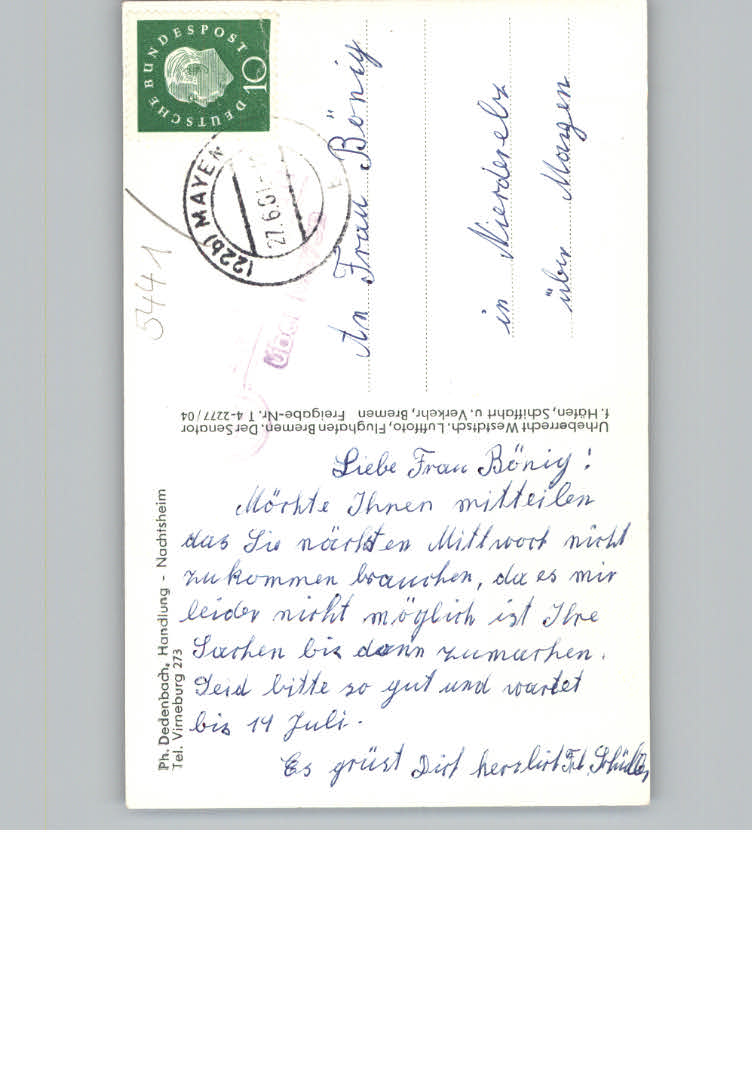 DEUTSCHE BUNDESPOST
10
(22b) MAYEN
27.6.61
5441
An Frau Bönig
in Nierderelz
über Mayen
Urheberrecht Westdtsch. Luftfoto, Flughafen Bremen. Der Senator
f. Häfen, Schiffahrt u. Verkehr, Bremen Freigabe-Nr. T 4-2277/04
Ph. Dedenbach, Handlung - Nachtsheim
Tel. Virneburg 273
Liebe Frau Bönig!
Möchte Ihnen mitteilen
das Sie nächsten Mittwoch nicht
zu kommen brauchen, da es mir
leider nicht möglich ist Ihre
Sachen bis dann zumachen.
Seid bitte so gut und wartet
bis 14 Juli.
Es grüst Dich herzlich